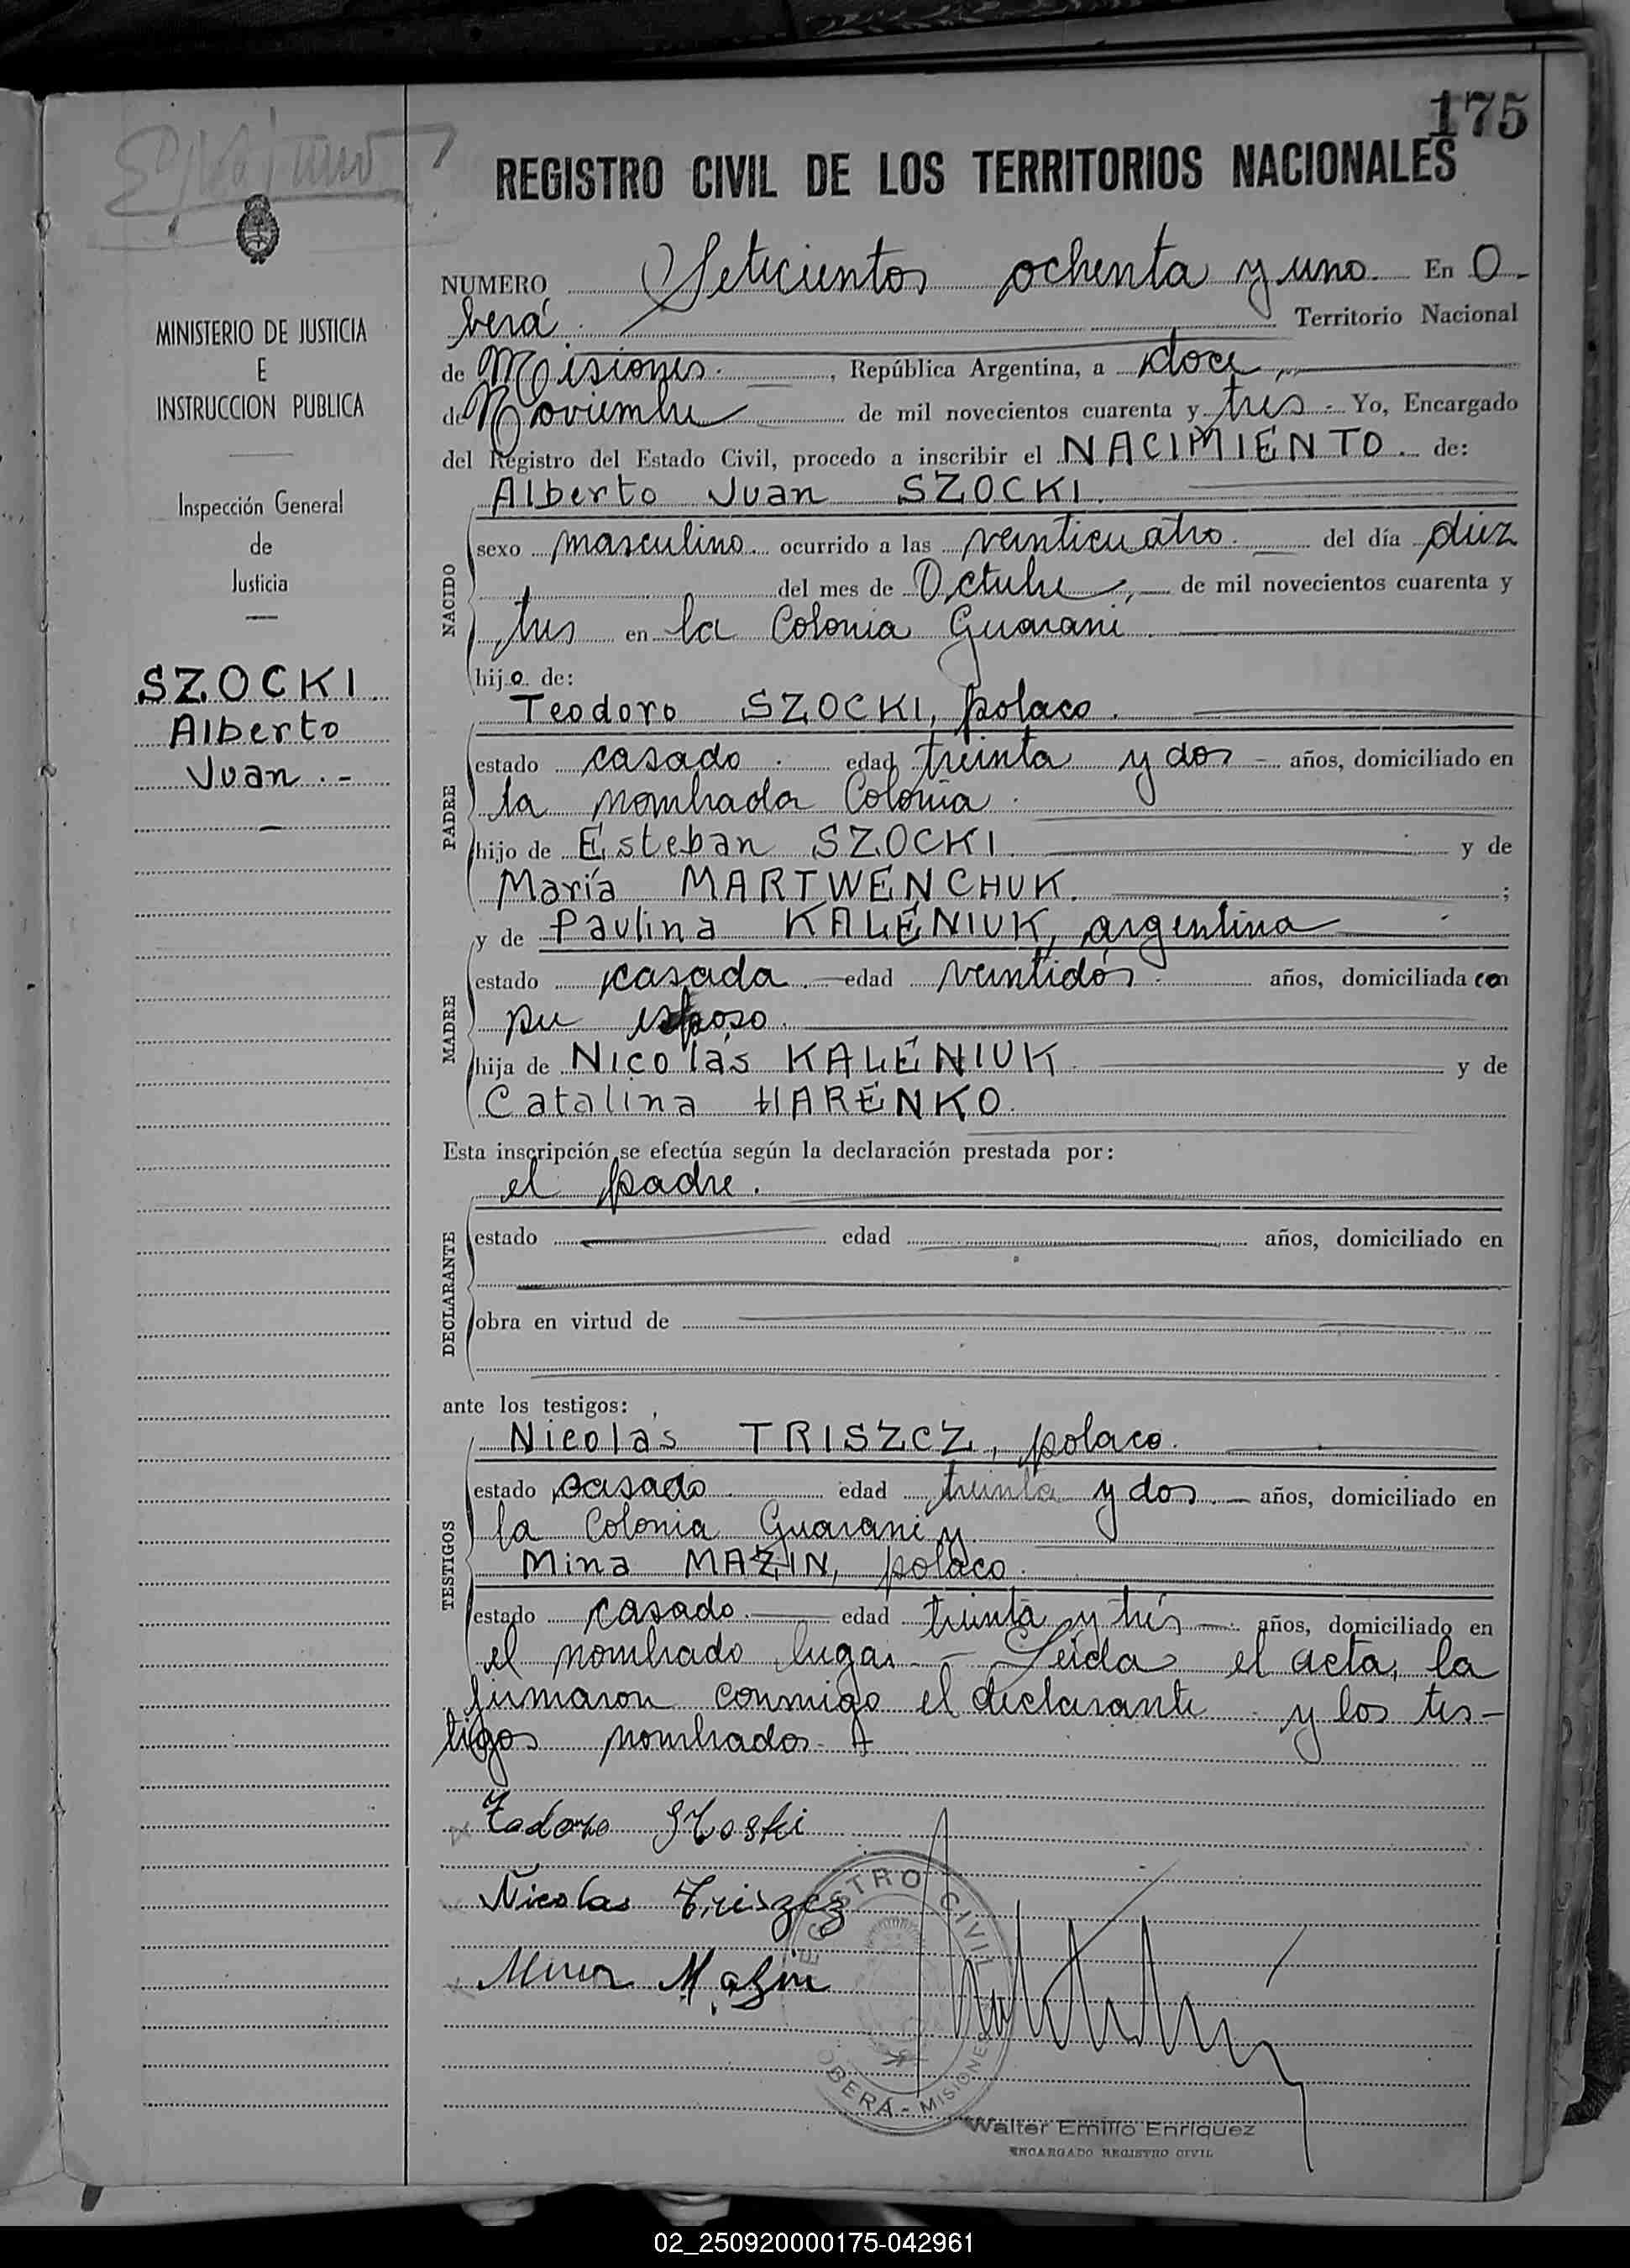 175
REGISTRO CIVIL DE LOS TERRITORIOS NACIONALES
MINISTERIO DE JUSTICIA
E
INSTRUCCION PUBLICA
Inspección General
de
Justicia
SZOCKI
Alberto
Juan.-
NUMERO Setecientos ochenta y uno. En O-
berá. Territorio Nacional
de Misiones., República Argentina, a doce,
de Noviembre de mil novecientos cuarenta y tres. Yo, Encargado
del Registro del Estado Civil, procedo a inscribir el NACIMIENTO. de:
Alberto Juan SZOCKI.
NACIDO
sexo masculino. ocurrido a las veinticuatro. del día diez
del mes de Octubre, de mil novecientos cuarenta y
tres en la Colonia Guarani.
hijo de:
PADRE
Teodoro SZOCKI, polaco.
estado casado. edad treinta y dos - años, domiciliado en
la nombrada Colonia.
hijo de Esteban SZOCKI. y de
María MARTWENCHUK. ;
MADRE
y de Paulina KALENIUK, argentina
estado casada. edad veintidós. años, domiciliada con
su esposo.
hija de Nicolás KALENIUK. y de
Catalina HARENKO.
Esta inscripción se efectúa según la declaración prestada por:
DECLARANTE
el padre.
estado edad años, domiciliado en
obra en virtud de
ante los testigos:
TESTIGOS
Nicolás TRISZCZ, polaco.
estado casado. edad treinta y dos. - años, domiciliado en
la Colonia Guarani y
Mina MAZIN, polaco.
estado casado. edad treinta y trés - años, domiciliado en
el nombrado lugar - Leída el acta, la
firmaron conmigo el declarante y los tes-
tigos nombrados.
Nicolas Triszcz
Mina Mazin
REGISTRO CIVIL
OBERÁ - MISIONES
Walter Emilio Enriquez
ENCARGADO REGISTRO CIVIL
02_250920000175-042961